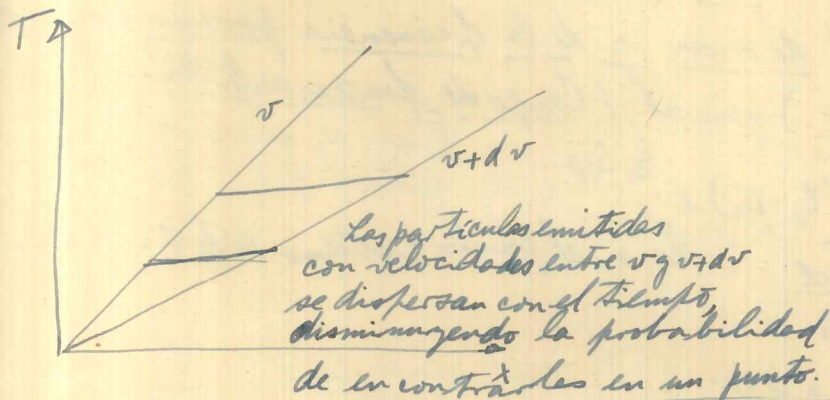 T
v
v+dv
Las partículas emitidas
con velocidades entre v y v+dv
se dispersan con el tiempo,
disminuyendo la probabilidad
x
de encontrarlas en un punto.